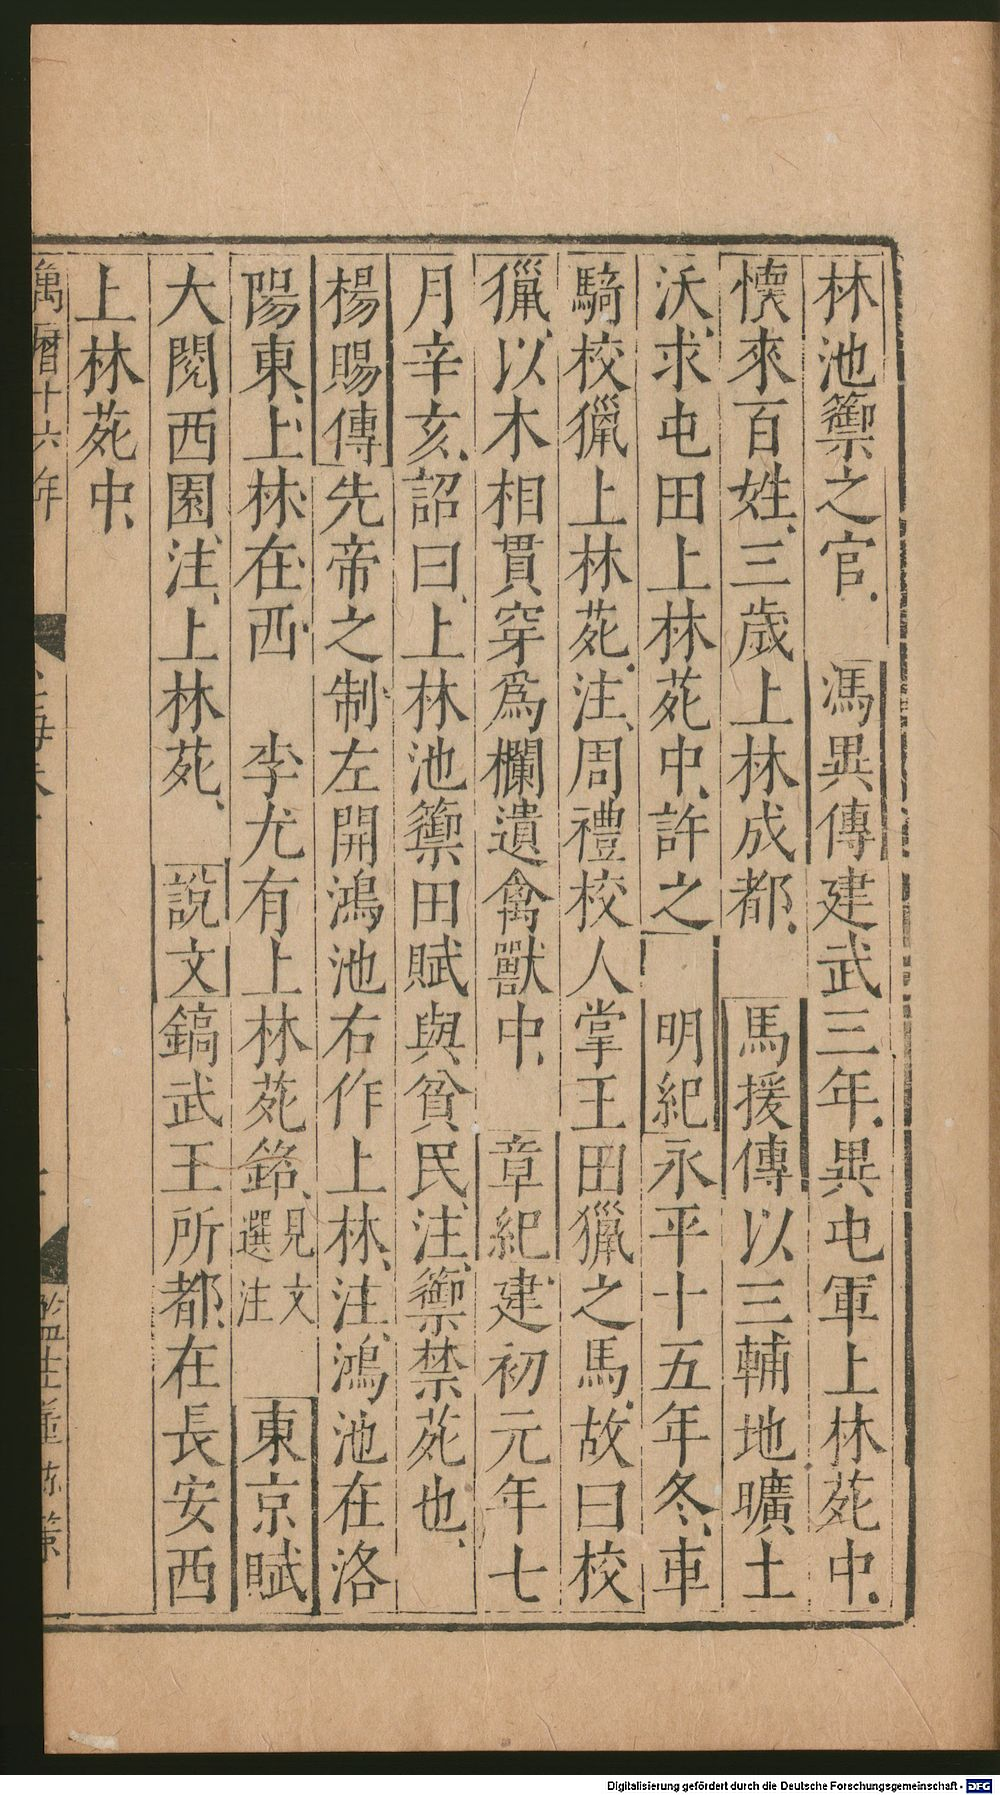 林池籞之官　馮異傳建武三年異屯軍上林苑中
懷來百姓三歲上林成都　馬援傳以三輔地曠土
沃求屯田上林苑中許之　明紀永平十五年冬車
騎校獵上林苑注周禮校人掌王田獵之馬故曰校
獵以木相貫穿爲欄遺禽獸中　章紀建初元年七
月辛亥詔曰上林池籞田賦與貧民注籞禁苑也
楊賜傳先帝之制左開鴻池右作上林注鴻池在洛
陽東上林在西　李尤有上林苑銘見文選注　東京賦
大閱西園注上林苑　說文鎬武王所都在長安西
上林苑中
萬曆十六年
監生
Digitalisierung gefördert durch die Deutsche Forschungsgemeinschaft - DFG